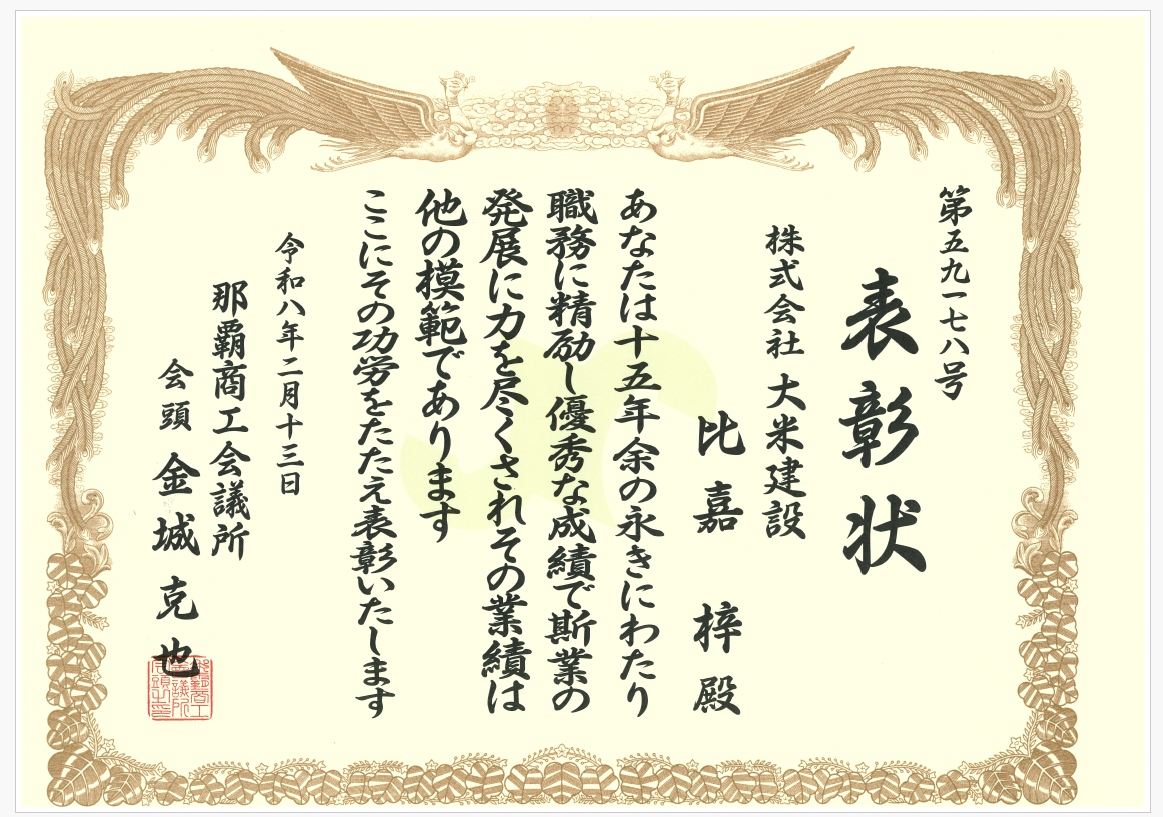 第五九一七八号
表彰状
株式会社 大米建設
比嘉 梓 殿
あなたは十五年余の永きにわたり
職務に精励し優秀な成績で斯業の
発展に力を尽くされその業績は
他の模範であります
ここにその功労をたたえ表彰いたします
令和八年二月十三日
那覇商工会議所
会頭 金城克也